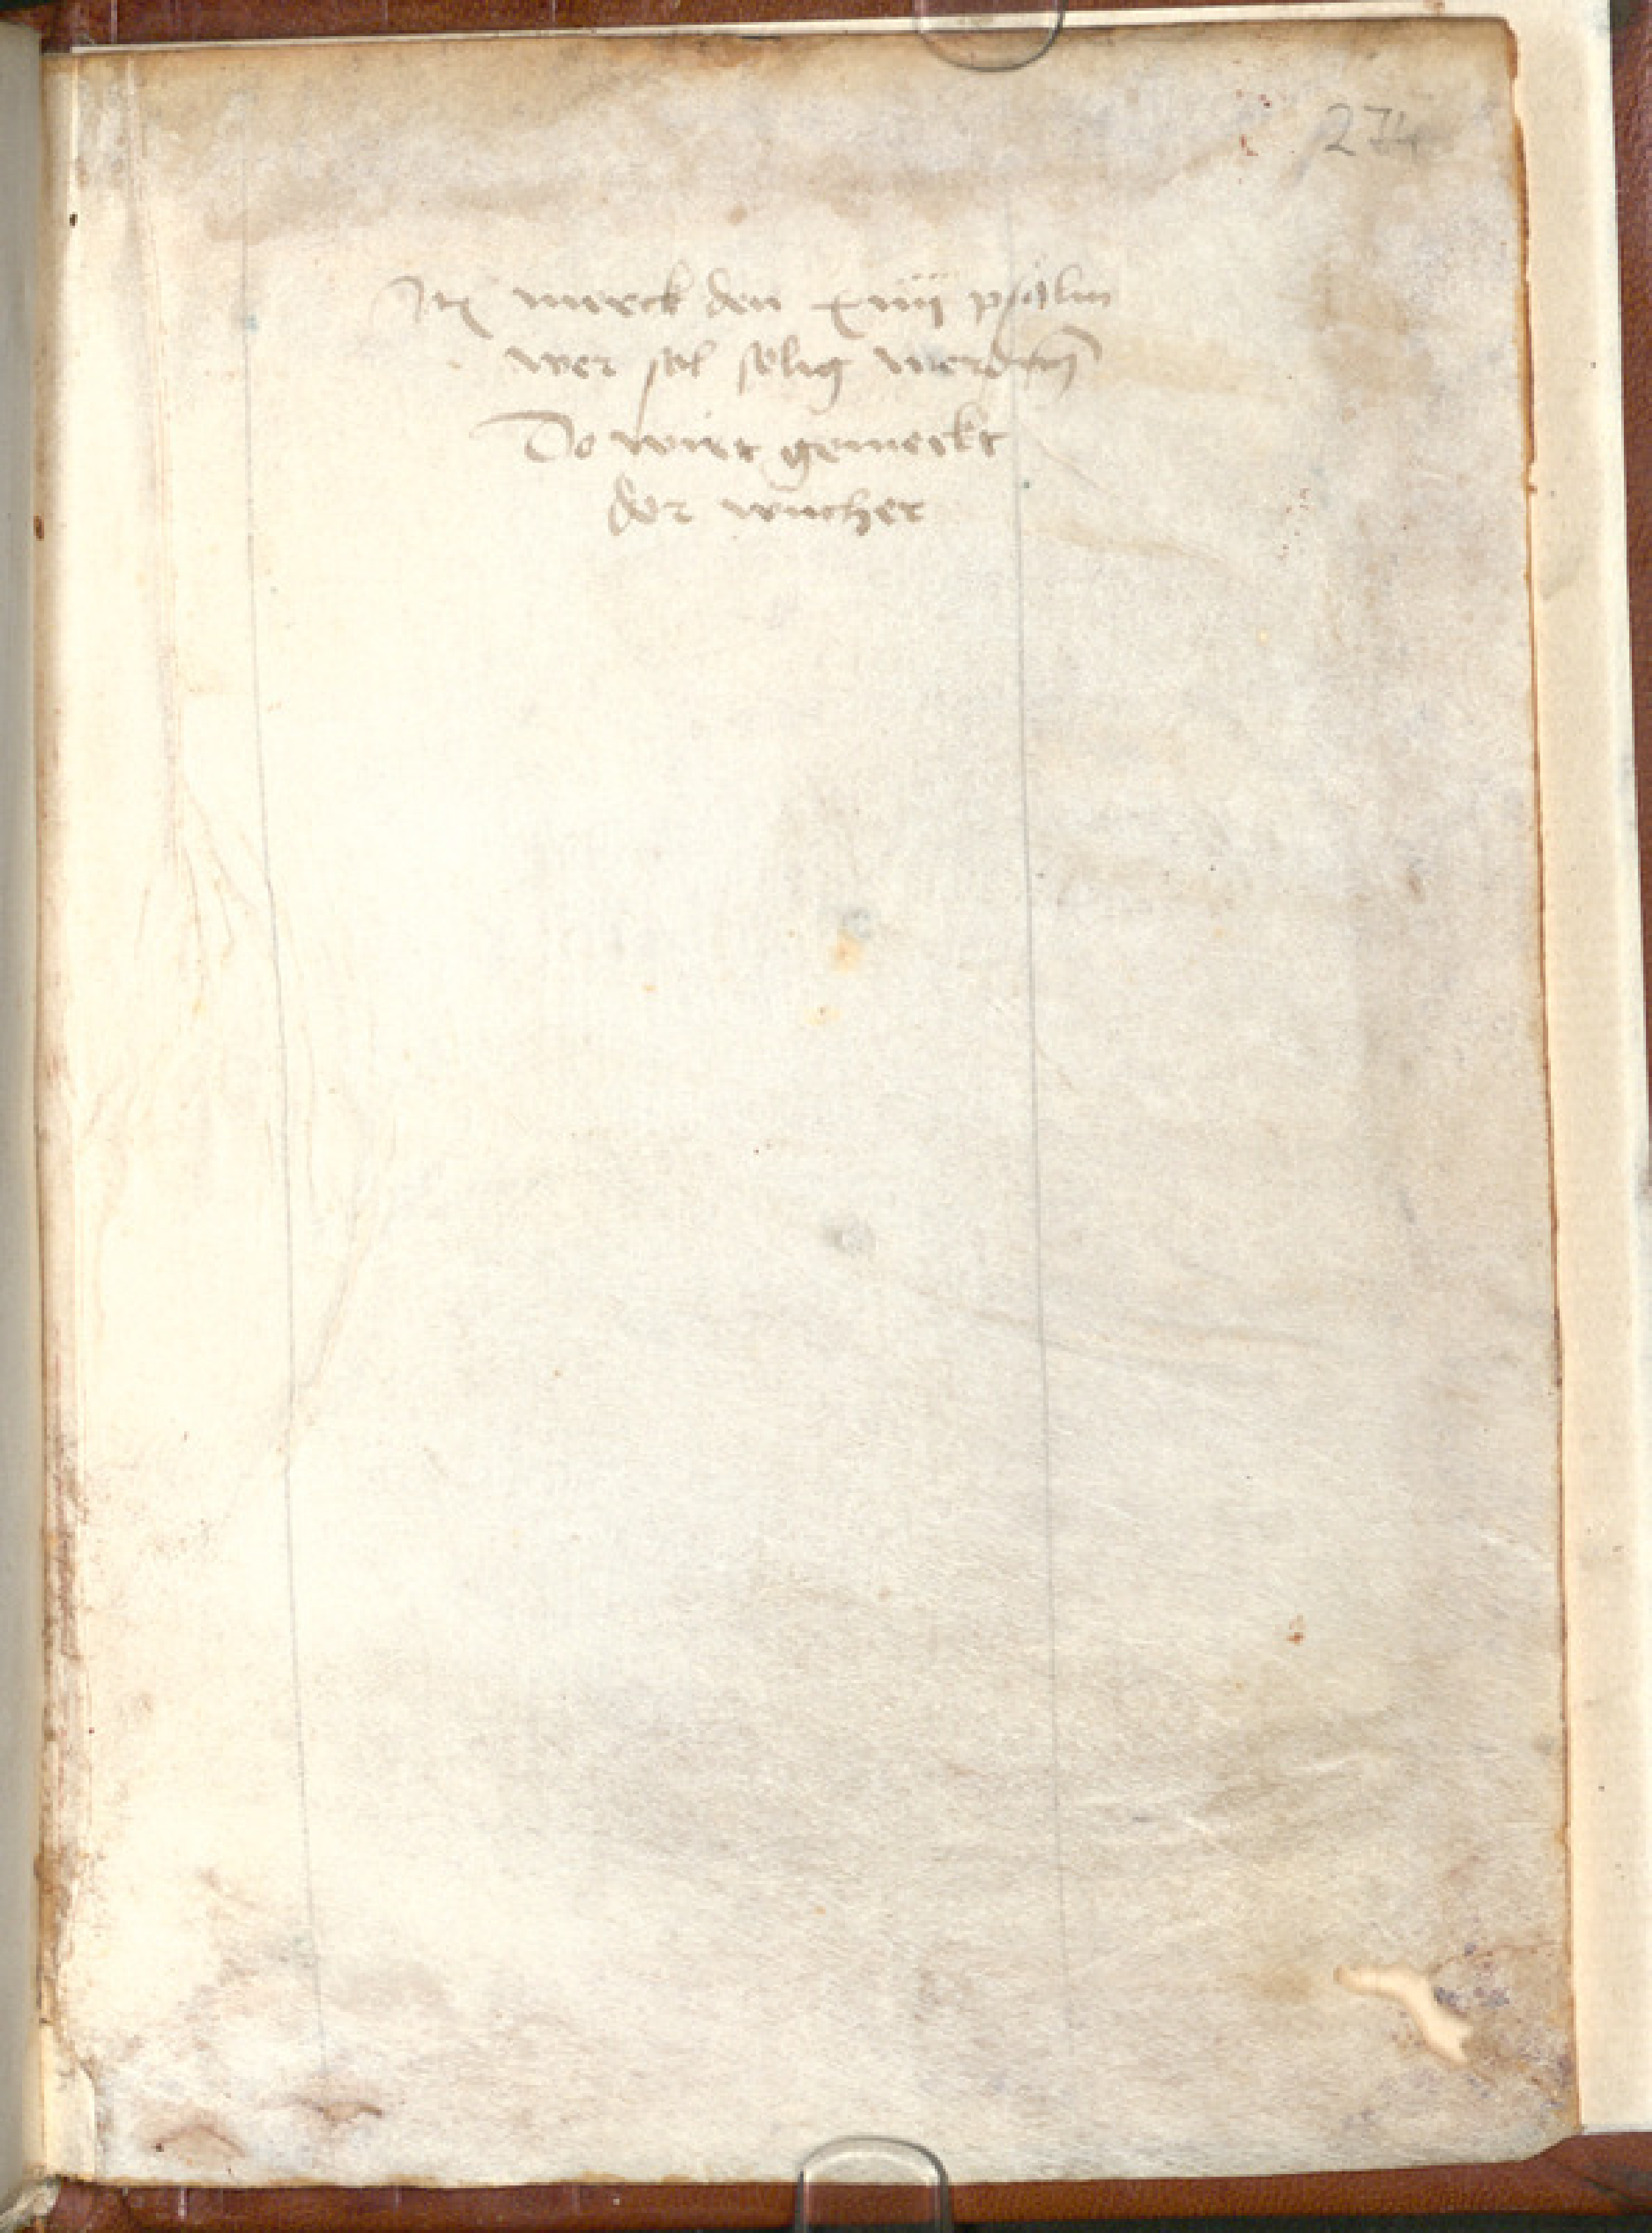 274
Itē merck den xiiii psalm
wer sol selig werden
Do wirt gemerkt
der wucher